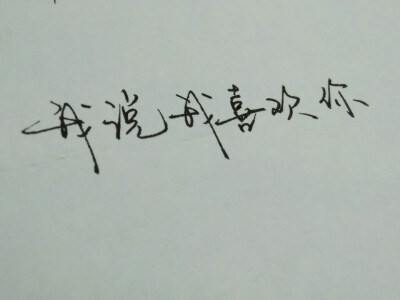 我说我喜欢你